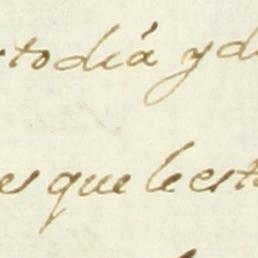 rtodiá y di
es que le esta